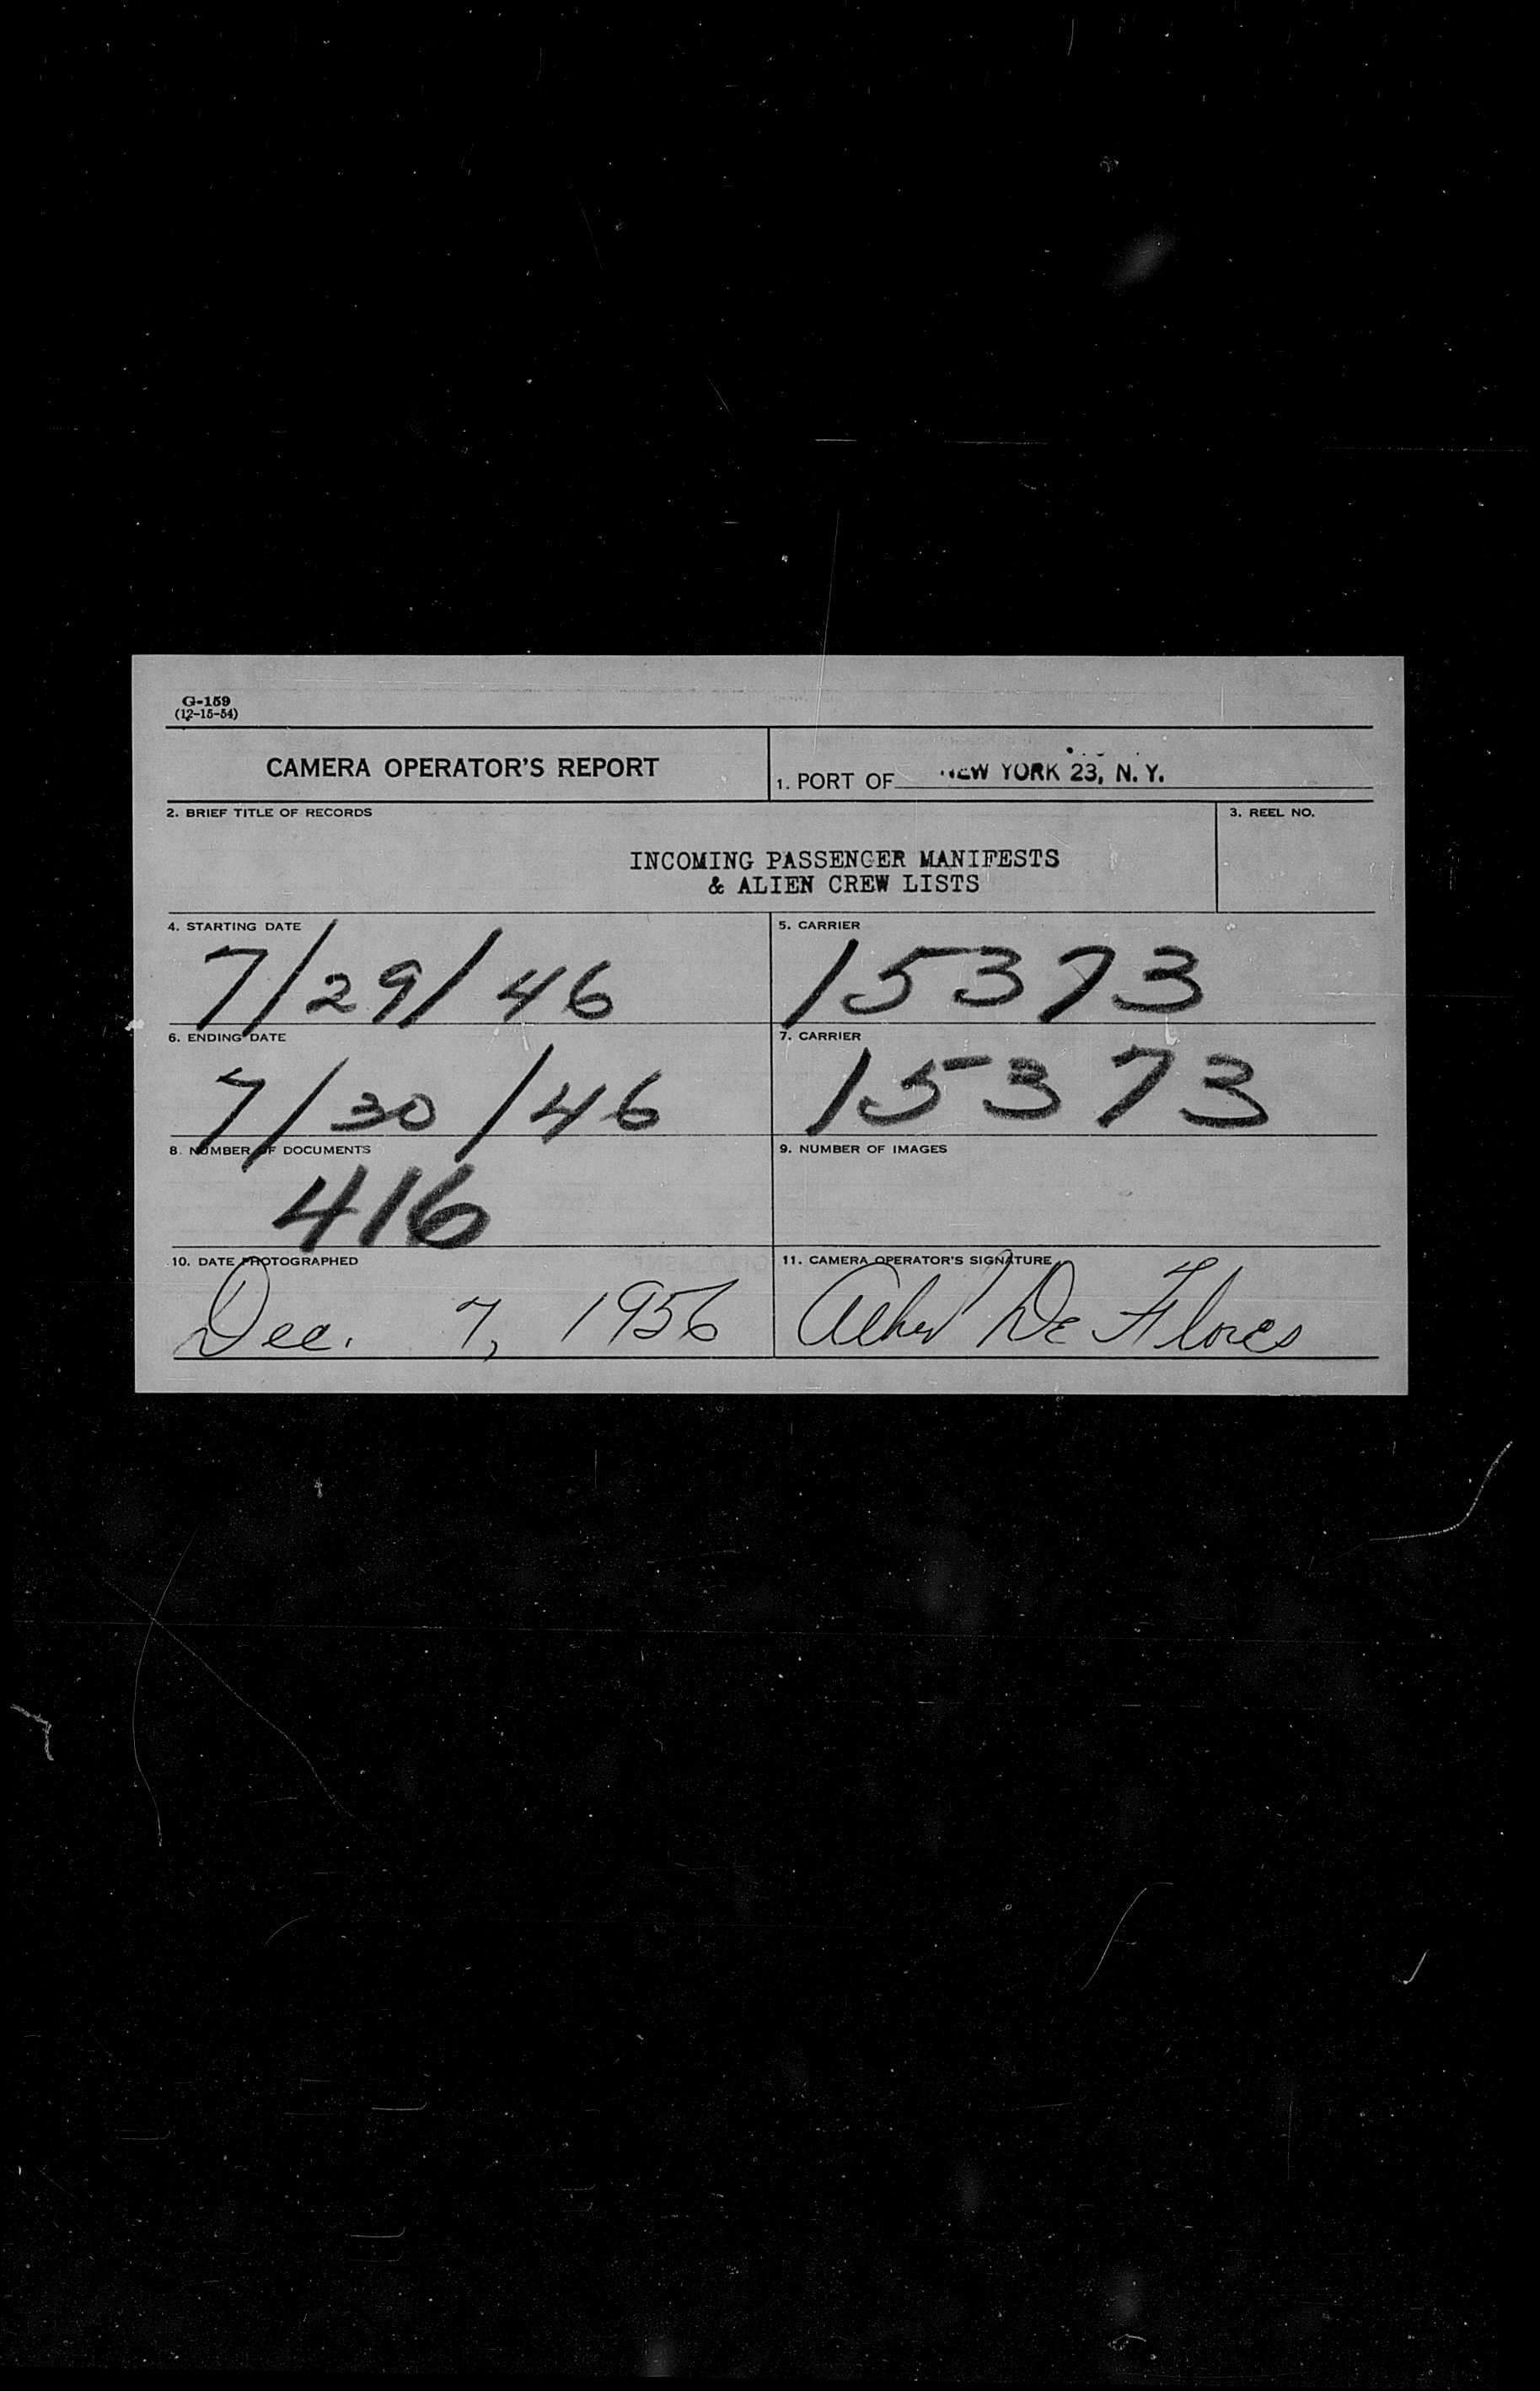 G-159
(12-15-54)
CAMERA OPERATOR'S REPORT
1. PORT OF NEW YORK 23, N. Y.
2. BRIEF TITLE OF RECORDS
3. REEL NO.
INCOMING PASSENGER MANIFESTS
& ALIEN CREW LISTS
4. STARTING DATE
7/29/46
5. CARRIER
15373
6. ENDING DATE
7/30/46
7. CARRIER
15373
8. NUMBER OF DOCUMENTS
416
9. NUMBER OF IMAGES
10. DATE PHOTOGRAPHED
Dec. 7, 1956
11. CAMERA OPERATOR'S SIGNATURE
De Flores